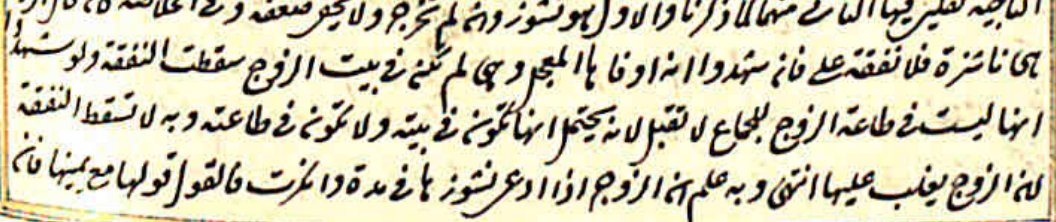 فيها الثانى منهما لما ذكرنا والاول هو نشوز وان لم تخرج ولا يخفى ضعفه وفى
هى ناشزة فلا نفقة على فان شهدوا انه اوفاها المعجل وهى لم تكن فى بيت الزوج سقطت النفقة ولو شهدوا
انها ليست فى طاعة الزوج للجماع لا تقبل لانه يحتمل انها تكون فى بيته ولا تكون فى طاعته وبه لا تسقط النفقة
لان الزوج يغلب عليها انتهى وبه علم ان الزوج اذا ادعى نشوزها فى مدة وانكرت فالقول قولها مع يمينها فان